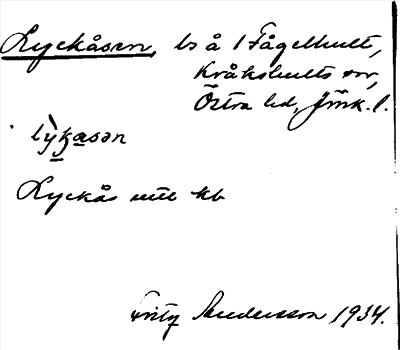 Lyckåsen, ls å 1 Fågelhult,
Kråkshults sn,
Östra hd, Jönk. l.
lỳkasən
Lyckås enl kb
Fritz Andersson 1934.